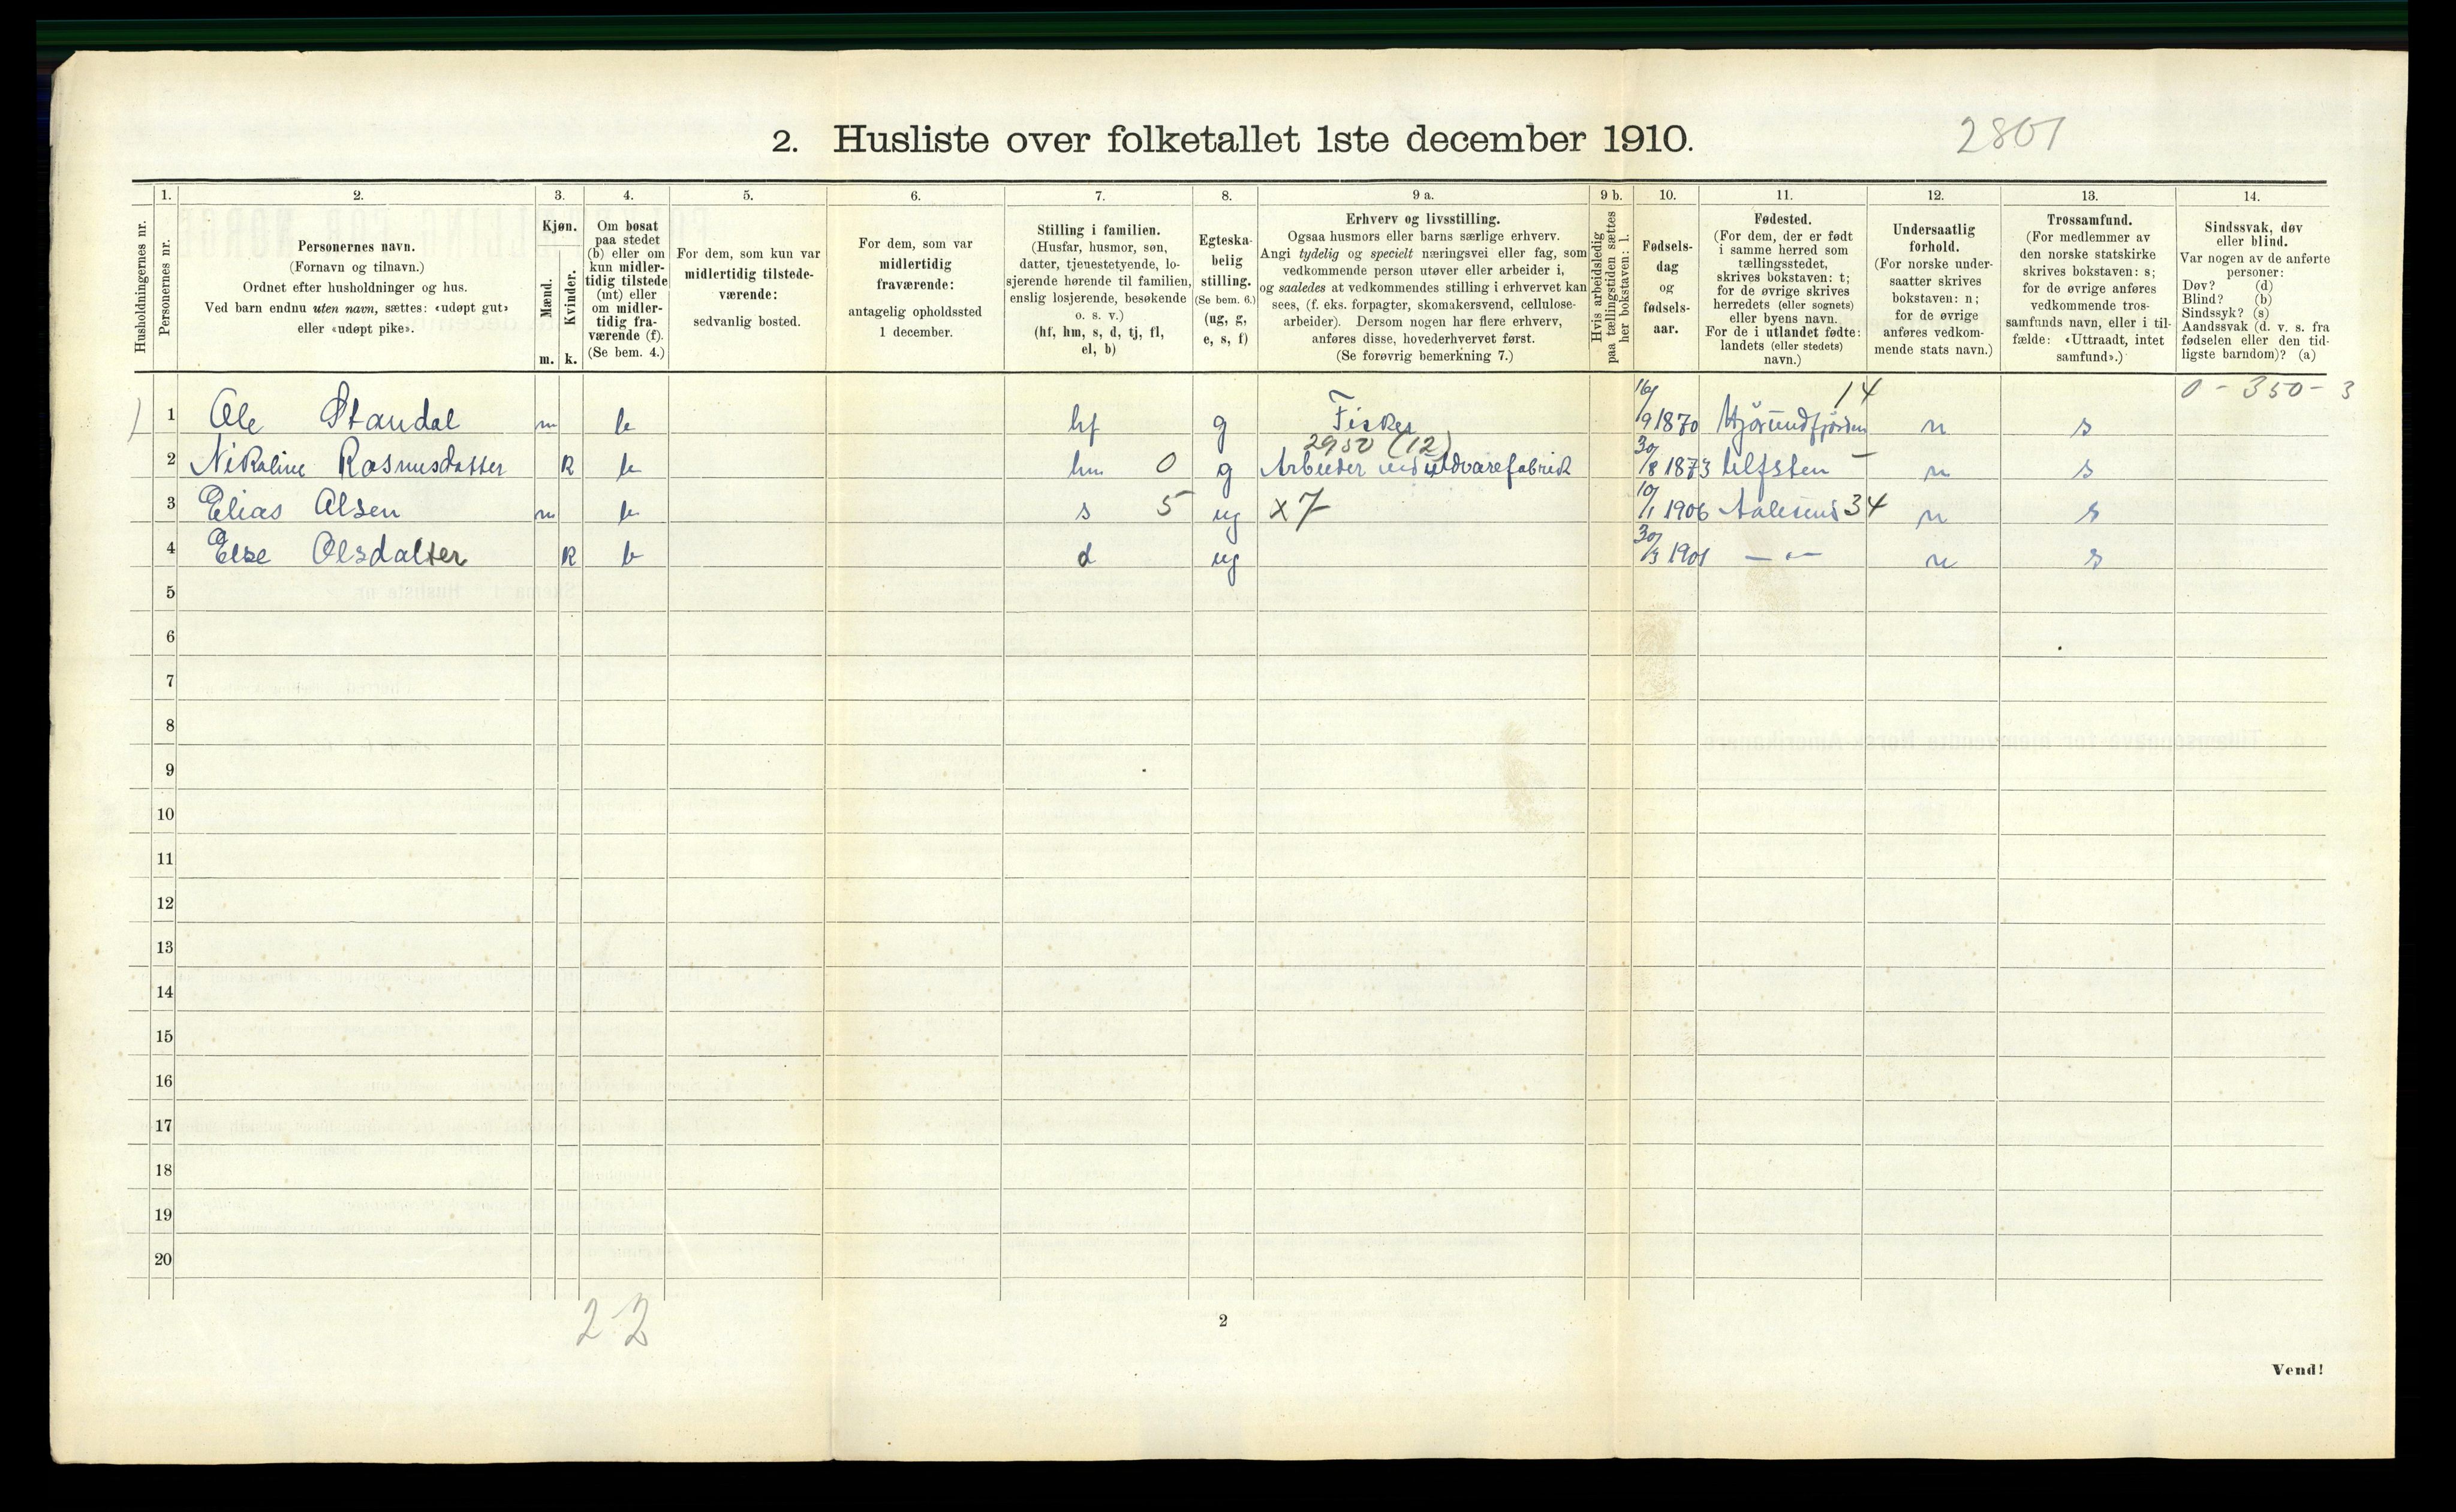 2. Husliste over folketallet 1ste december 1910.
2801
Husholdningernes nr.
1.
Personernes nr.
2.
Personernes navn.
(Fornavn og tilnavn.)
Ordnet efter husholdninger og hus.
Ved barn endnu uten navn, sættes: «udøpt gut»
eller «udøpt pike».
3.
Kjøn.
Mænd.
Kvinder.
m. k.
4.
Om bosat
paa stedet
(b) eller om
kun midler-
tidig tilstede
(mt) eller
om midler-
tidig fra-
værende (f).
(Se bem. 4.)
5.
For dem, som kun var
midlertidig tilstede-
værende:
sedvanlig bosted.
6.
For dem, som var
midlertidig
fraværende:
antagelig opholdssted
1 december.
7.
Stilling i familien.
(Husfar, husmor, søn,
datter, tjenestetyende, lo-
sjerende hørende til familien,
enslig losjerende, besøkende
o. s. v.)
(hf, hm, s, d, tj, fl,
el, b)
8.
Egteska-
belig
stilling.
(Se bem. 6.)
(ug, g,
e, s, f)
9 a.
Erhverv og livsstilling.
Ogsaa husmors eller barns særlige erhverv.
Angi tydelig og specielt næringsvei eller fag, som
vedkommende person utøver eller arbeider i,
og saaledes at vedkommendes stilling i erhvervet kan
sees, (f. eks. forpagter, skomakersvend, cellulose-
arbeider). Dersom nogen har flere erhverv,
anføres disse, hovederhvervet først.
(Se forøvrig bemerkning 7.)
9 b.
Hvis arbeidsledig
paa tællingstiden sættes
her bokstaven: l.
10.
Fødsels-
dag
og
fødsels-
aar.
11.
Fødested.
(For dem, der er født
i samme herred som
tællingsstedet,
skrives bokstaven: t;
for de øvrige skrives
herredets (eller sognets)
eller byens navn.
For de i utlandet fødte:
landets (eller stedets)
navn.)
12.
Undersaatlig
forhold.
(For norske under-
saatter skrives
bokstaven: n;
for de øvrige
anføres vedkom-
mende stats navn.)
13.
Trossamfund.
(For medlemmer av
den norske statskirke
skrives bokstaven: s;
for de øvrige anføres
vedkommende tros-
samfunds navn, eller i til-
fælde: «Uttraadt, intet
samfund».)
14.
Sindssvak, døv
eller blind.
Var nogen av de anførte
personer:
Døv? (d)
Blind? (b)
Sindssyk? (s)
Aandssvak (d. v. s. fra
fødselen eller den tid-
ligste barndom)? (a)
14 0 - 350 - 3
1 Ole Standal m b hf g Fisker 16/9 1870 Hjørundfjorden n s
2950 (12)
2 Nikoline Rasmusdatter k b hm 0 g Arbeider ved uldvarefabrick 30/8 1873 Ulfsten - n s
3 Elias Olsen m b s 5 ug x7 10/1 1906 Aalesund 34 n s
4 Else Olsdatter k b d ug 30/3 1901 — „ — n s
5
6
7
8
9
10
11
12
13
14
15
16
17
18
19
20
2 2
2
Vend!